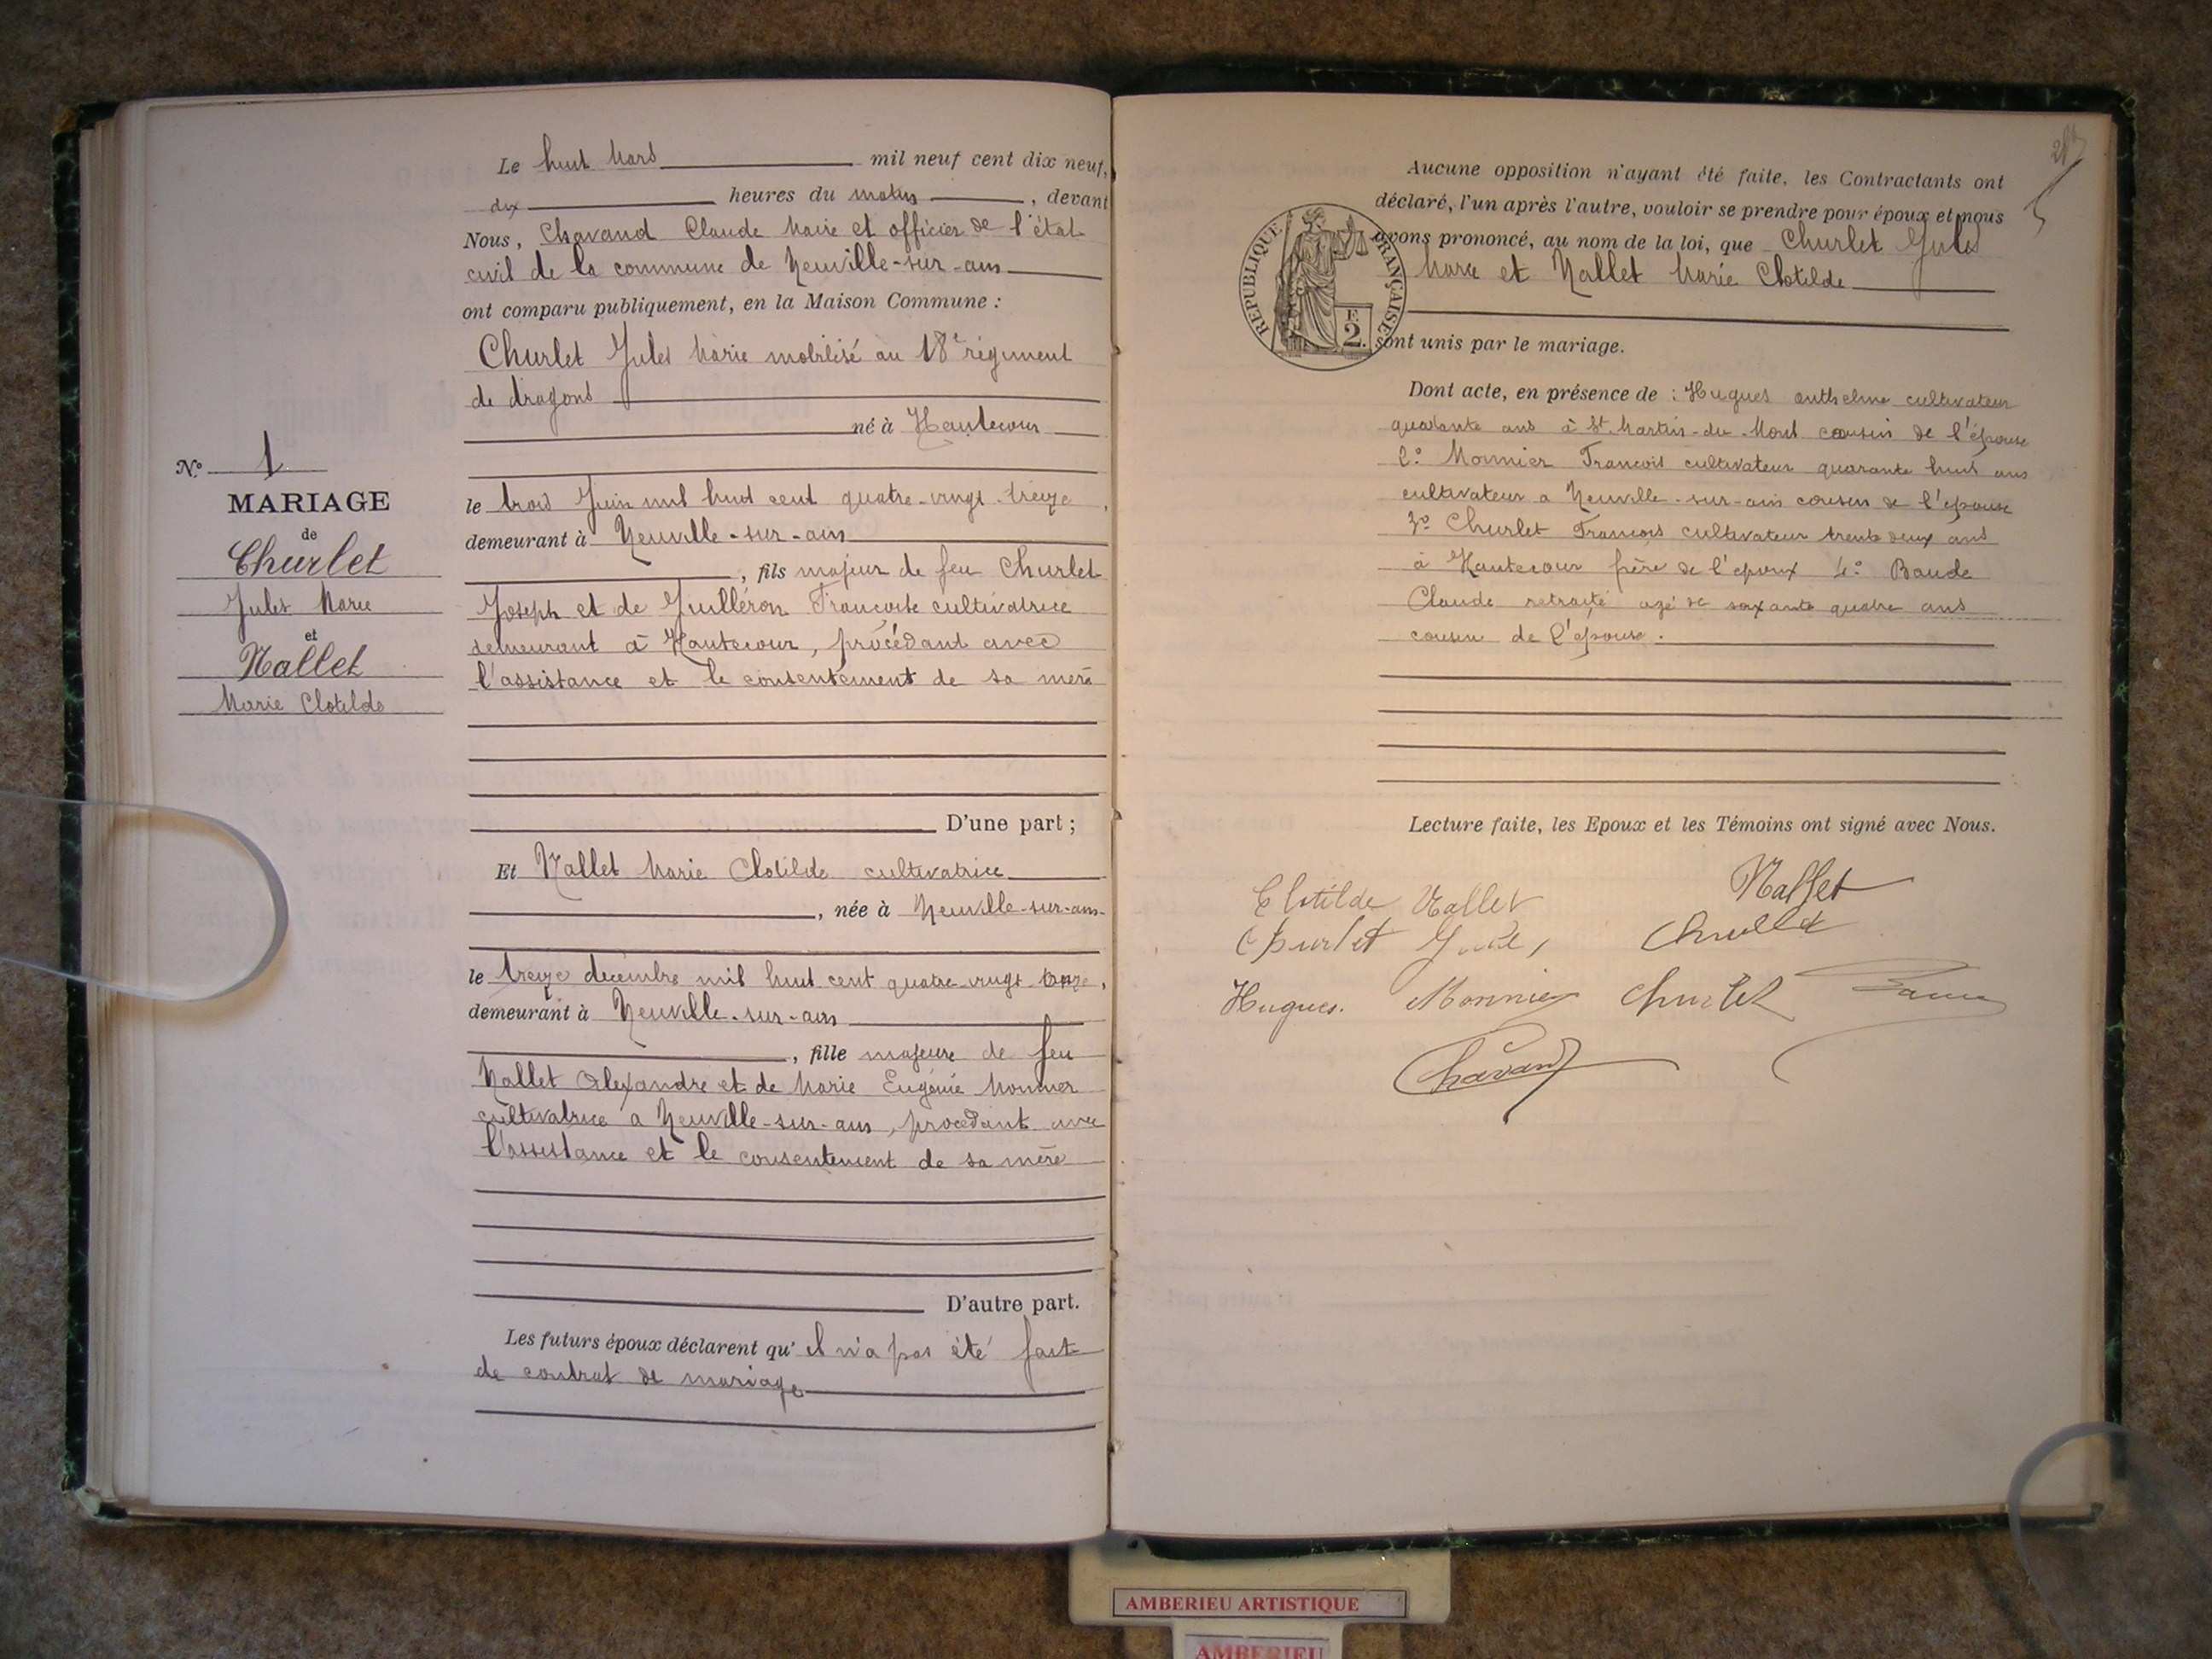 Le huit Mars mil neuf cent dix neuf,
dix heures du matin, devant
Nous, Chavand Claude Maire et officier de l'état
civil de la commune de Neuville-sur-ain
ont comparu publiquement, en la Maison Commune :
Churlet Jules Marie mobilisé au 18e régiment
de dragons
né à Hautecour
le trois Juin mil huit cent quatre-vingt-treize,
demeurant à Neuville-sur-ain
, fils majeur de feu Churlet
Joseph et de Guilléron Francoise cultivatrice
demeurant à Hautecour, procédant avec
l'assistance et le consentement de sa mère
D'une part ;
N° 1
MARIAGE
de
Churlet
Jules Marie
et
Nallet
Marie Clotilde
Et Nallet Marie Clotilde cultivatrice
, née à Neuville-sur-ain-
le treize décembre mil huit cent quatre-vingt onze,
demeurant à Neuville-sur-ain
, fille majeure de feu
Nallet Alexandre et de Marie Eugénie Monnier
cultivatrice à Neuville-sur-ain, procédant avec
l'assistance et le consentement de sa mère
D'autre part.
Les futurs époux déclarent qu'il n'a pas été fait
de contrat de mariage
Aucune opposition n'ayant été faite, les Contractants ont
déclaré, l'un après l'autre, vouloir se prendre pour époux et nous
avons prononcé, au nom de la loi, que Churlet Jules
Marie et Nallet Marie Clotilde
sont unis par le mariage.
REPUBLIQUE FRANÇAISE
F.
2.
Dont acte, en présence de : Hugues anthelme cultivateur
quarante ans à St Martin-du-Mont cousin de l'épouse
2° Monnier Francois cultivateur quarante huit ans
cultivateur a Neuville-sur-ain cousin de l'epouse
3° Churlet Francois cultivateur trente deux ans
à Hautecour frère de l'epoux 4° Baude
Claude retraité agé de soixante quatre ans
cousin de l'epouse.
Lecture faite, les Epoux et les Témoins ont signé avec Nous.
Clotilde Nallet Nallet
Churlet Jule,
Hugues. Monnier Churlet
Chavand
AMBERIEU ARTISTIQUE
AMBERIEU